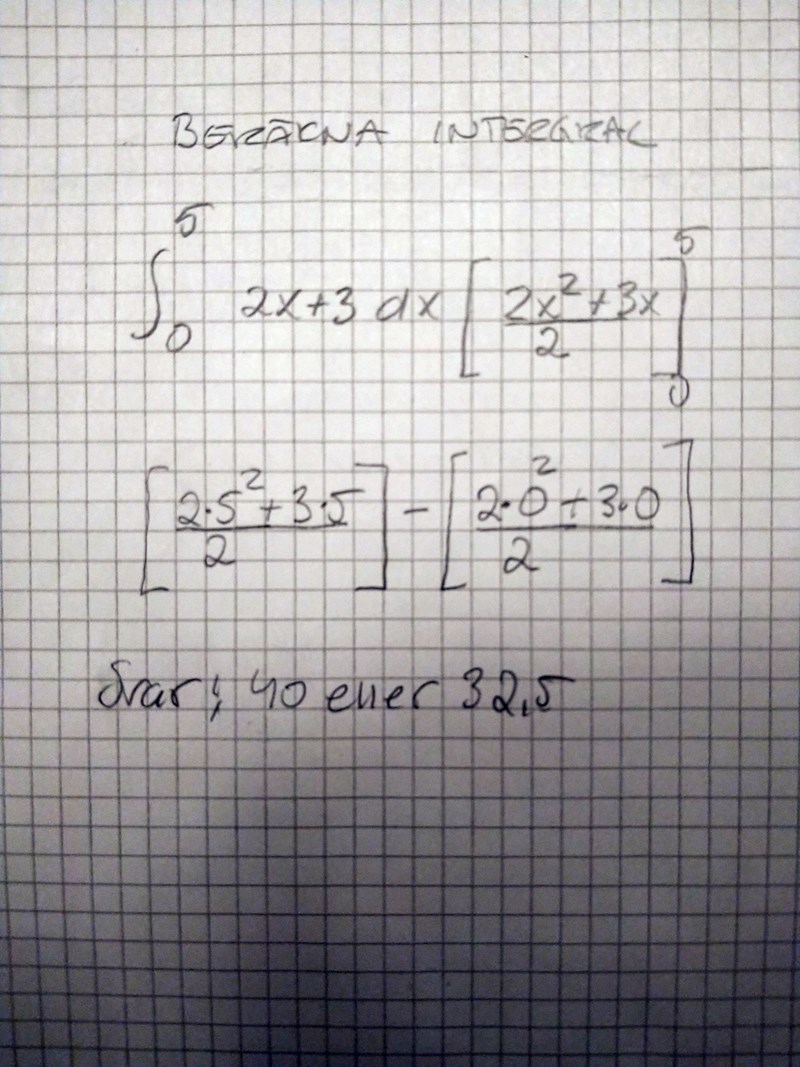 BERÄKNA INTEGRAL
∫₀⁵ 2x+3 dx [(2x²+3x)/2]₀⁵
[(2·5²+3·5)/2] - [(2·0²+3·0)/2]
Svar; 40 eller 32,5